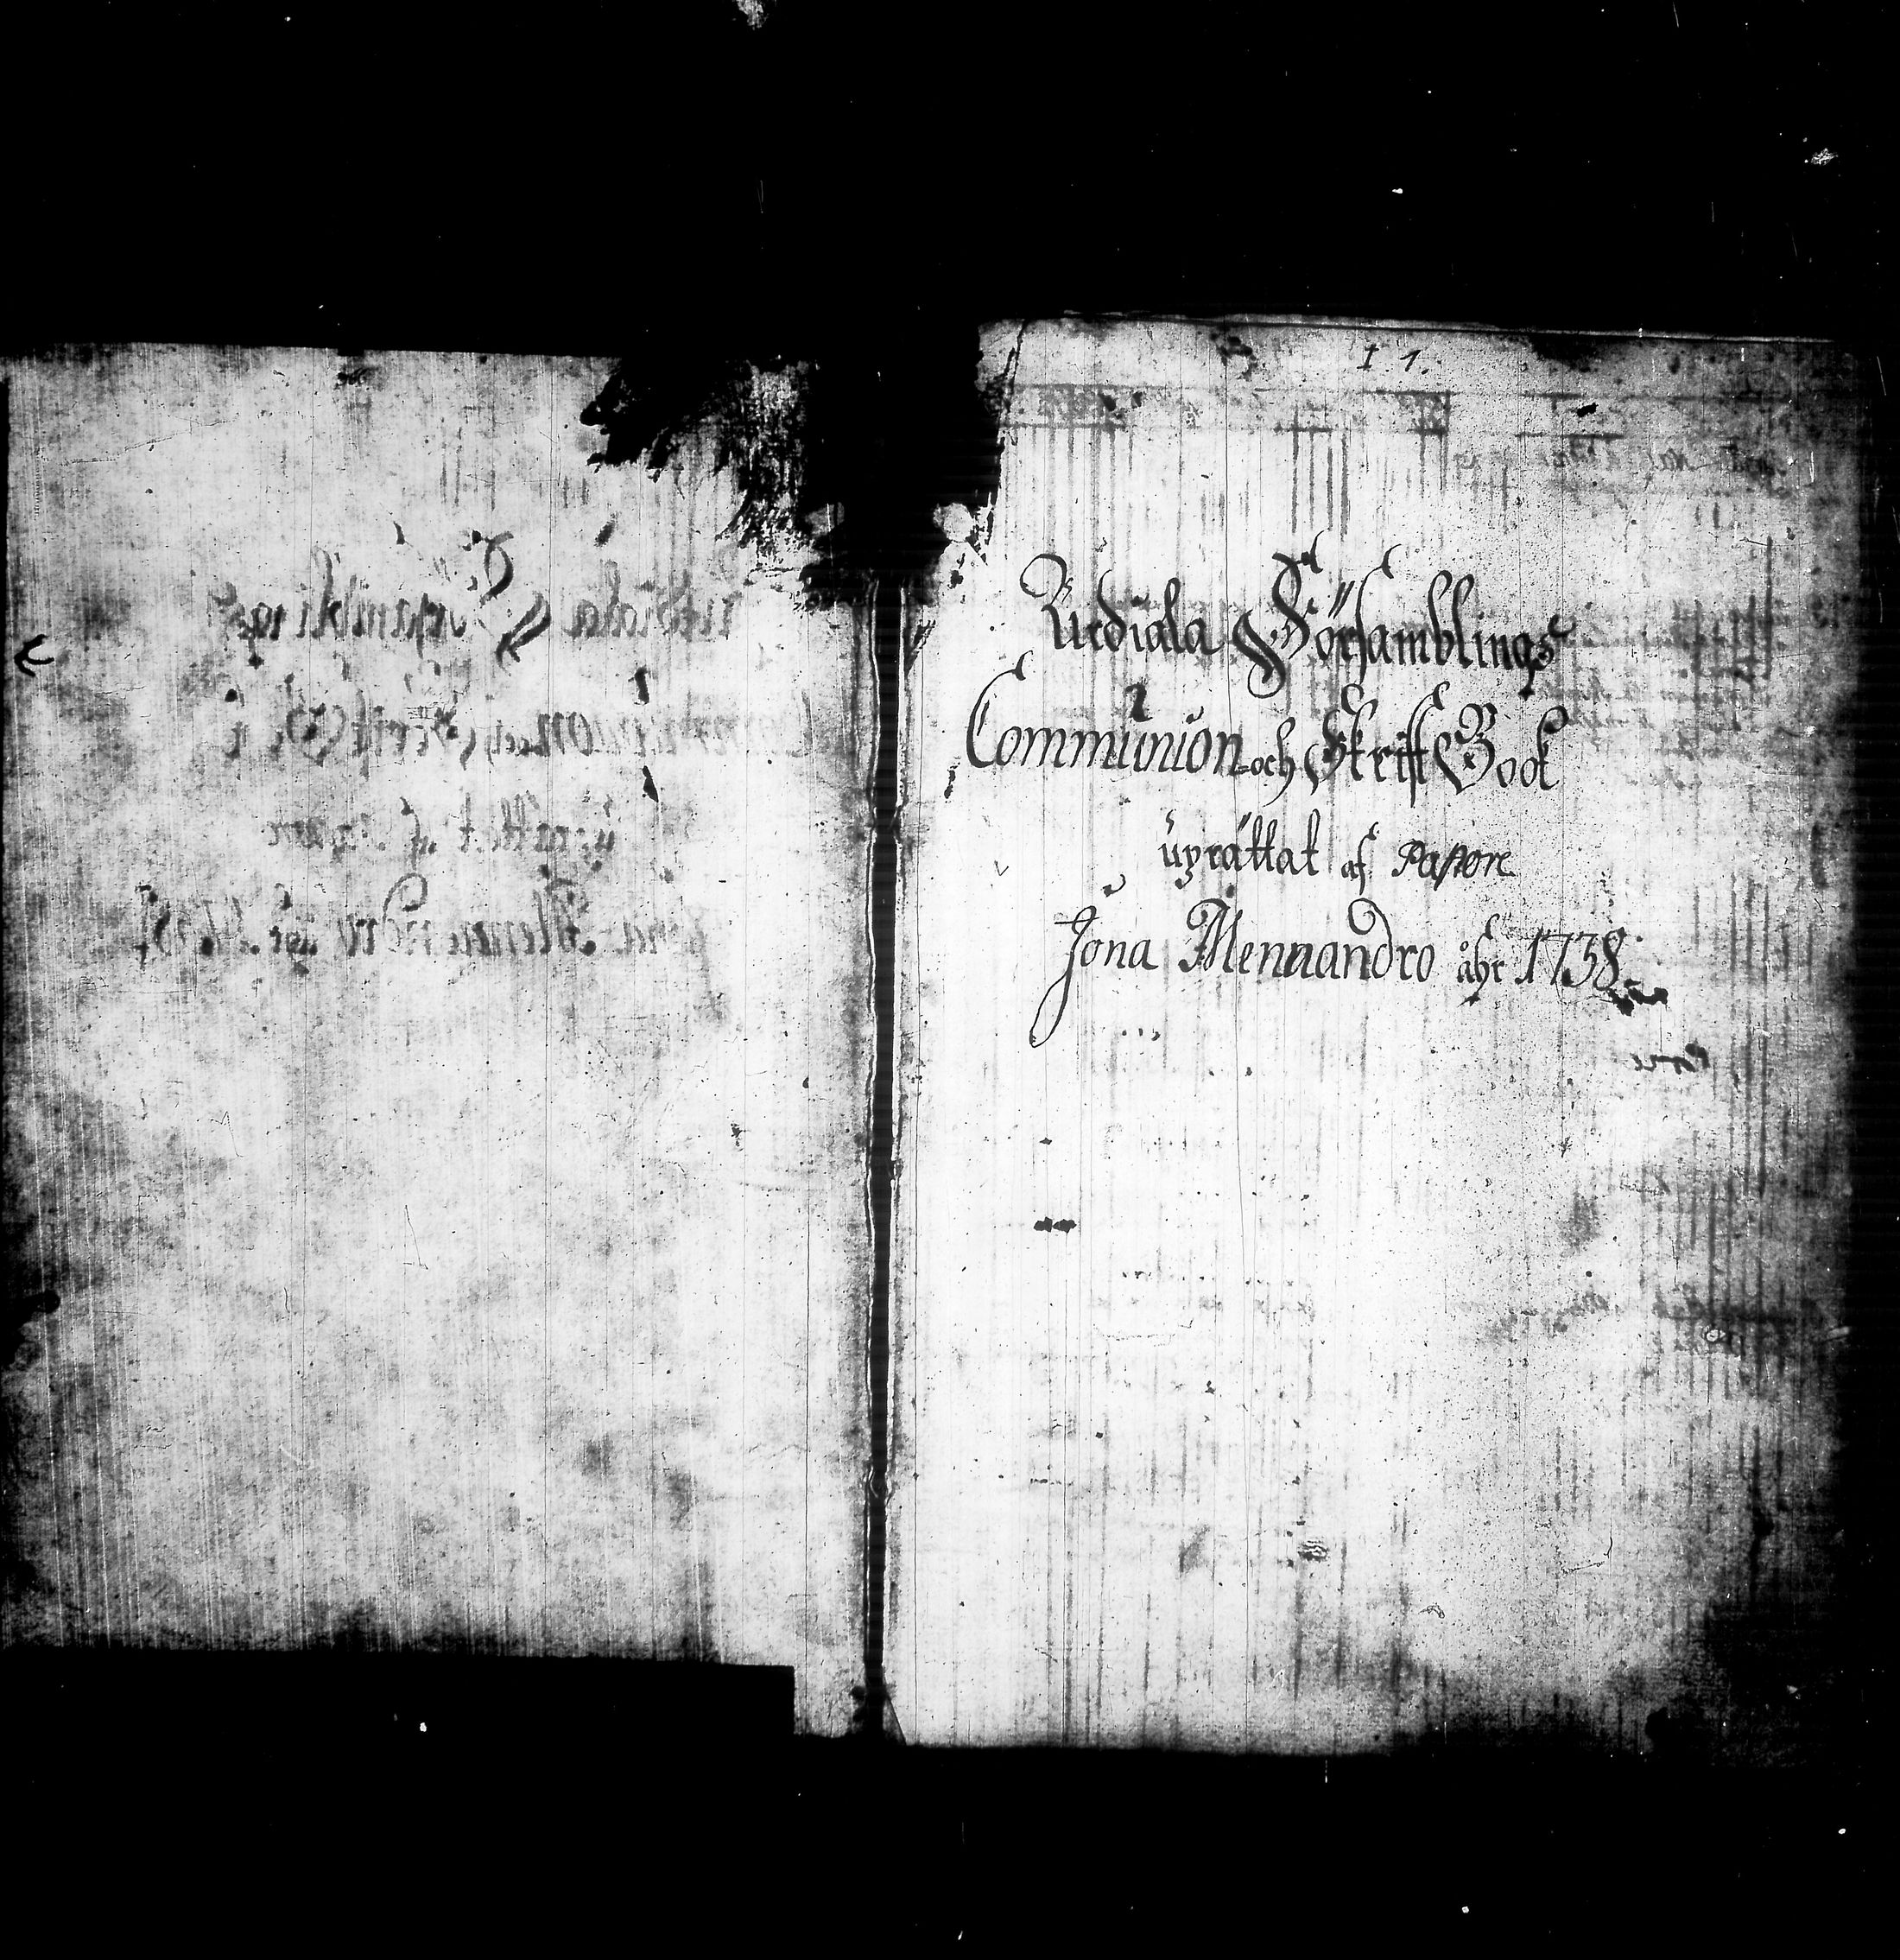 I. 1.
Urdiala Församblings
Communion och Skrifft Book
uprättat af Pastore
Jona Mennandro åhr 1738.